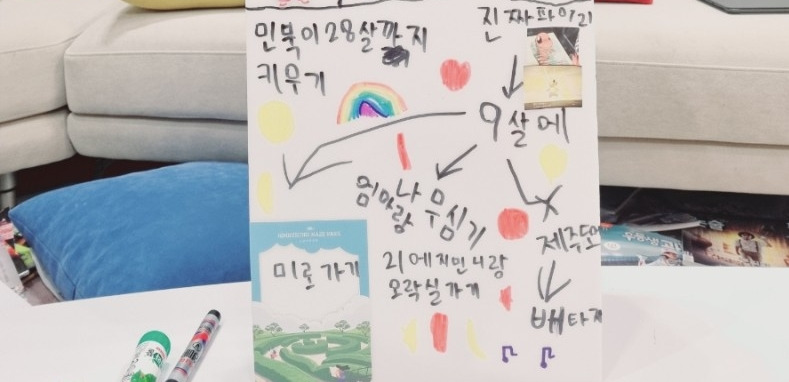 민북이28살까지
키우기
진짜파이리
9살에
엄마랑나무심기
제주도
배타기
리에지민니랑
오락실가기
미로가기